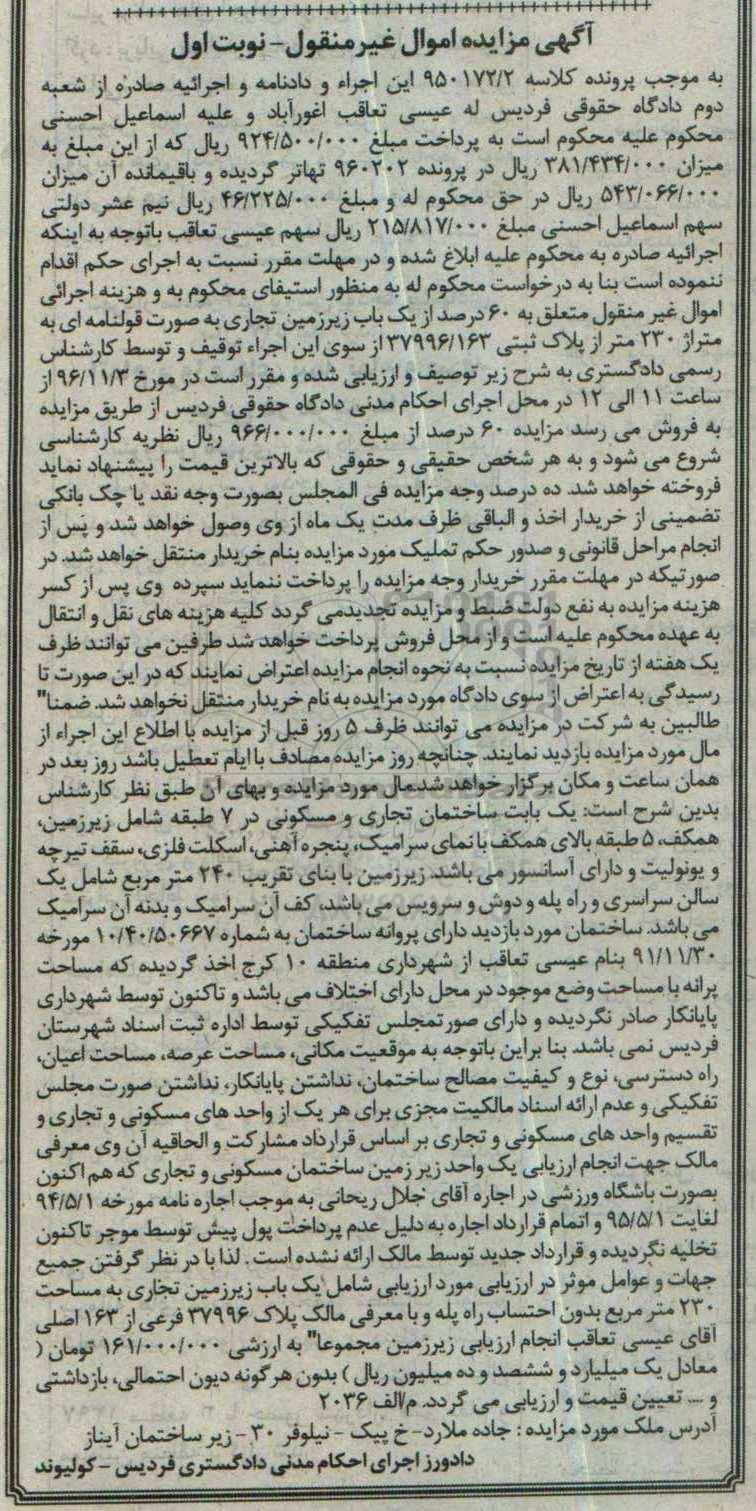 آگهی مزایده اموال غیرمنقول- نوبت اول
به موجب پرونده کلاسه ۹۵۰۱۷۲/۲ این اجراء و دادنامه و اجرائیه صادره از شعبه
دوم دادگاه حقوقی فردیس له عیسی تعاقب اغورآباد و علیه اسماعیل احسنی
محکوم علیه محکوم است به پرداخت مبلغ ۹۲۴/۵۰۰/۰۰۰ ریال که از این مبلغ به
میزان ۳۸۱/۴۳۴/۰۰۰ ریال در پرونده ۹۶۰۲۰۲ تهاتر گردیده و باقیمانده آن میزان
۵۴۳/۰۶۶/۰۰۰ ریال در حق محکوم له و مبلغ ۴۶/۲۲۵/۰۰۰ ریال نیم عشر دولتی
سهم اسماعیل احسنی مبلغ ۲۱۵/۸۱۷/۰۰۰ ریال سهم عیسی تعاقب باتوجه به اینکه
اجرائیه صادره به محکوم علیه ابلاغ شده و در مهلت مقرر نسبت به اجرای حکم اقدام
ننموده است بنا به درخواست محکوم له به منظور استیفای محکوم به و هزینه اجرائی
اموال غیر منقول متعلق به ۶۰ درصد از یک باب زیرزمین تجاری به صورت قولنامه ای به
متراژ ۲۳۰ متر از پلاک ثبتی ۳۷۹۹۶/۱۶۳ از سوی این اجراء توقیف و توسط کارشناس
رسمی دادگستری به شرح زیر توصیف و ارزیابی شده و مقرر است در مورخ ۹۶/۱۱/۳ از
ساعت ۱۱ الی ۱۲ در محل اجرای احکام مدنی دادگاه حقوقی فردیس از طریق مزایده
به فروش می رسد مزایده ۶۰ درصد از مبلغ ۹۶۶/۰۰۰/۰۰۰ ریال نظریه کارشناسی
شروع می شود و به هر شخص حقیقی و حقوقی که بالاترین قیمت را پیشنهاد نماید
فروخته خواهد شد. ده درصد وجه مزایده فی المجلس بصورت وجه نقد یا چک بانکی
تضمینی از خریدار اخذ و الباقی ظرف مدت یک ماه از وی وصول خواهد شد و پس از
انجام مراحل قانونی و صدور حکم تملیک مورد مزایده بنام خریدار منتقل خواهد شد. در
صورتیکه در مهلت مقرر خریدار وجه مزایده را پرداخت ننماید سپرده وی پس از کسر
هزینه مزایده به نفع دولت ضبط و مزایده تجدیدمی گردد کلیه هزینه های نقل و انتقال
به عهده محکوم علیه است و از محل فروش پرداخت خواهد شد طرفین می توانند ظرف
یک هفته از تاریخ مزایده نسبت به نحوه انجام مزایده اعتراض نمایند که در این صورت تا
رسیدگی به اعتراض از سوی دادگاه مورد مزایده به نام خریدار منتقل نخواهد شد. ضمنا"
طالبین به شرکت در مزایده می توانند ظرف ۵ روز قبل از مزایده با اطلاع این اجراء از
مال مورد مزایده بازدید نمایند. چنانچه روز مزایده مصادف با ایام تعطیل باشد روز بعد در
همان ساعت و مکان برگزار خواهد شد.مال مورد مزایده و بهای آن طبق نظر کارشناس
بدین شرح است: یک بابت ساختمان تجاری و مسکونی در ۷ طبقه شامل زیرزمین،
همکف، ۵ طبقه بالای همکف با نمای سرامیک، پنجره آهنی، اسکلت فلزی، سقف تیرچه
و یونولیت و دارای آسانسور می باشد. زیرزمین با بنای تقریب ۲۴۰ متر مربع شامل یک
سالن سراسری و راه پله و دوش و سرویس می باشد، کف آن سرامیک و بدنه آن سرامیک
می باشد. ساختمان مورد بازدید دارای پروانه ساختمان به شماره ۱۰/۴۰/۵۰۶۶۷ مورخه
۹۱/۱۱/۳۰ بنام عیسی تعاقب از شهرداری منطقه ۱۰ کرج اخذ گردیده که مساحت
پرانه با مساحت وضع موجود در محل دارای اختلاف می باشد و تاکنون توسط شهرداری
پایانکار صادر نگردیده و دارای صورتمجلس تفکیکی توسط اداره ثبت اسناد شهرستان
فردیس نمی باشد. بنا براین باتوجه به موقعیت مکانی، مساحت عرصه، مساحت اعیان،
راه دسترسی، نوع و کیفیت مصالح ساختمان، نداشتن پایانکار، نداشتن صورت مجلس
تفکیکی و عدم ارائه اسناد مالکیت مجزی برای هر یک از واحد های مسکونی و تجاری و
تقسیم واحد های مسکونی و تجاری بر اساس قرارداد مشارکت و الحاقیه آن وی معرفی
مالک جهت انجام ارزیابی یک واحد زیر زمین ساختمان مسکونی و تجاری که هم اکنون
بصورت باشگاه ورزشی در اجاره آقای جلال ریحانی به موجب اجاره نامه مورخه ۹۴/۵/۱
لغایت ۹۵/۵/۱ و اتمام قرارداد اجاره به دلیل عدم پرداخت پول پیش توسط موجر تاکنون
تخلیه نگردیده و قرارداد جدید توسط مالک ارائه نشده است . لذا با در نظر گرفتن جمیع
جهات و عوامل موثر در ارزیابی مورد ارزیابی شامل یک باب زیرزمین تجاری به مساحت
۲۳۰ متر مربع بدون احتساب راه پله و با معرفی مالک پلاک ۳۷۹۹۶ فرعی از ۱۶۳ اصلی
آقای عیسی تعاقب انجام ارزیابی زیرزمین مجموعا" به ارزشی ۱۶۱/۰۰۰/۰۰۰ تومان (
معادل یک میلیارد و ششصد و ده میلیون ریال ) بدون هرگونه دیون احتمالی، بازداشتی
و .... تعیین قیمت و ارزیابی می گردد. م/الف ۲۰۳۶
آدرس ملک مورد مزایده : جاده ملارد- خ پیک - نیلوفر ۳۰ - زیر ساختمان آیناز
دادورز اجرای احکام مدنی دادگستری فردیس - کولیوند